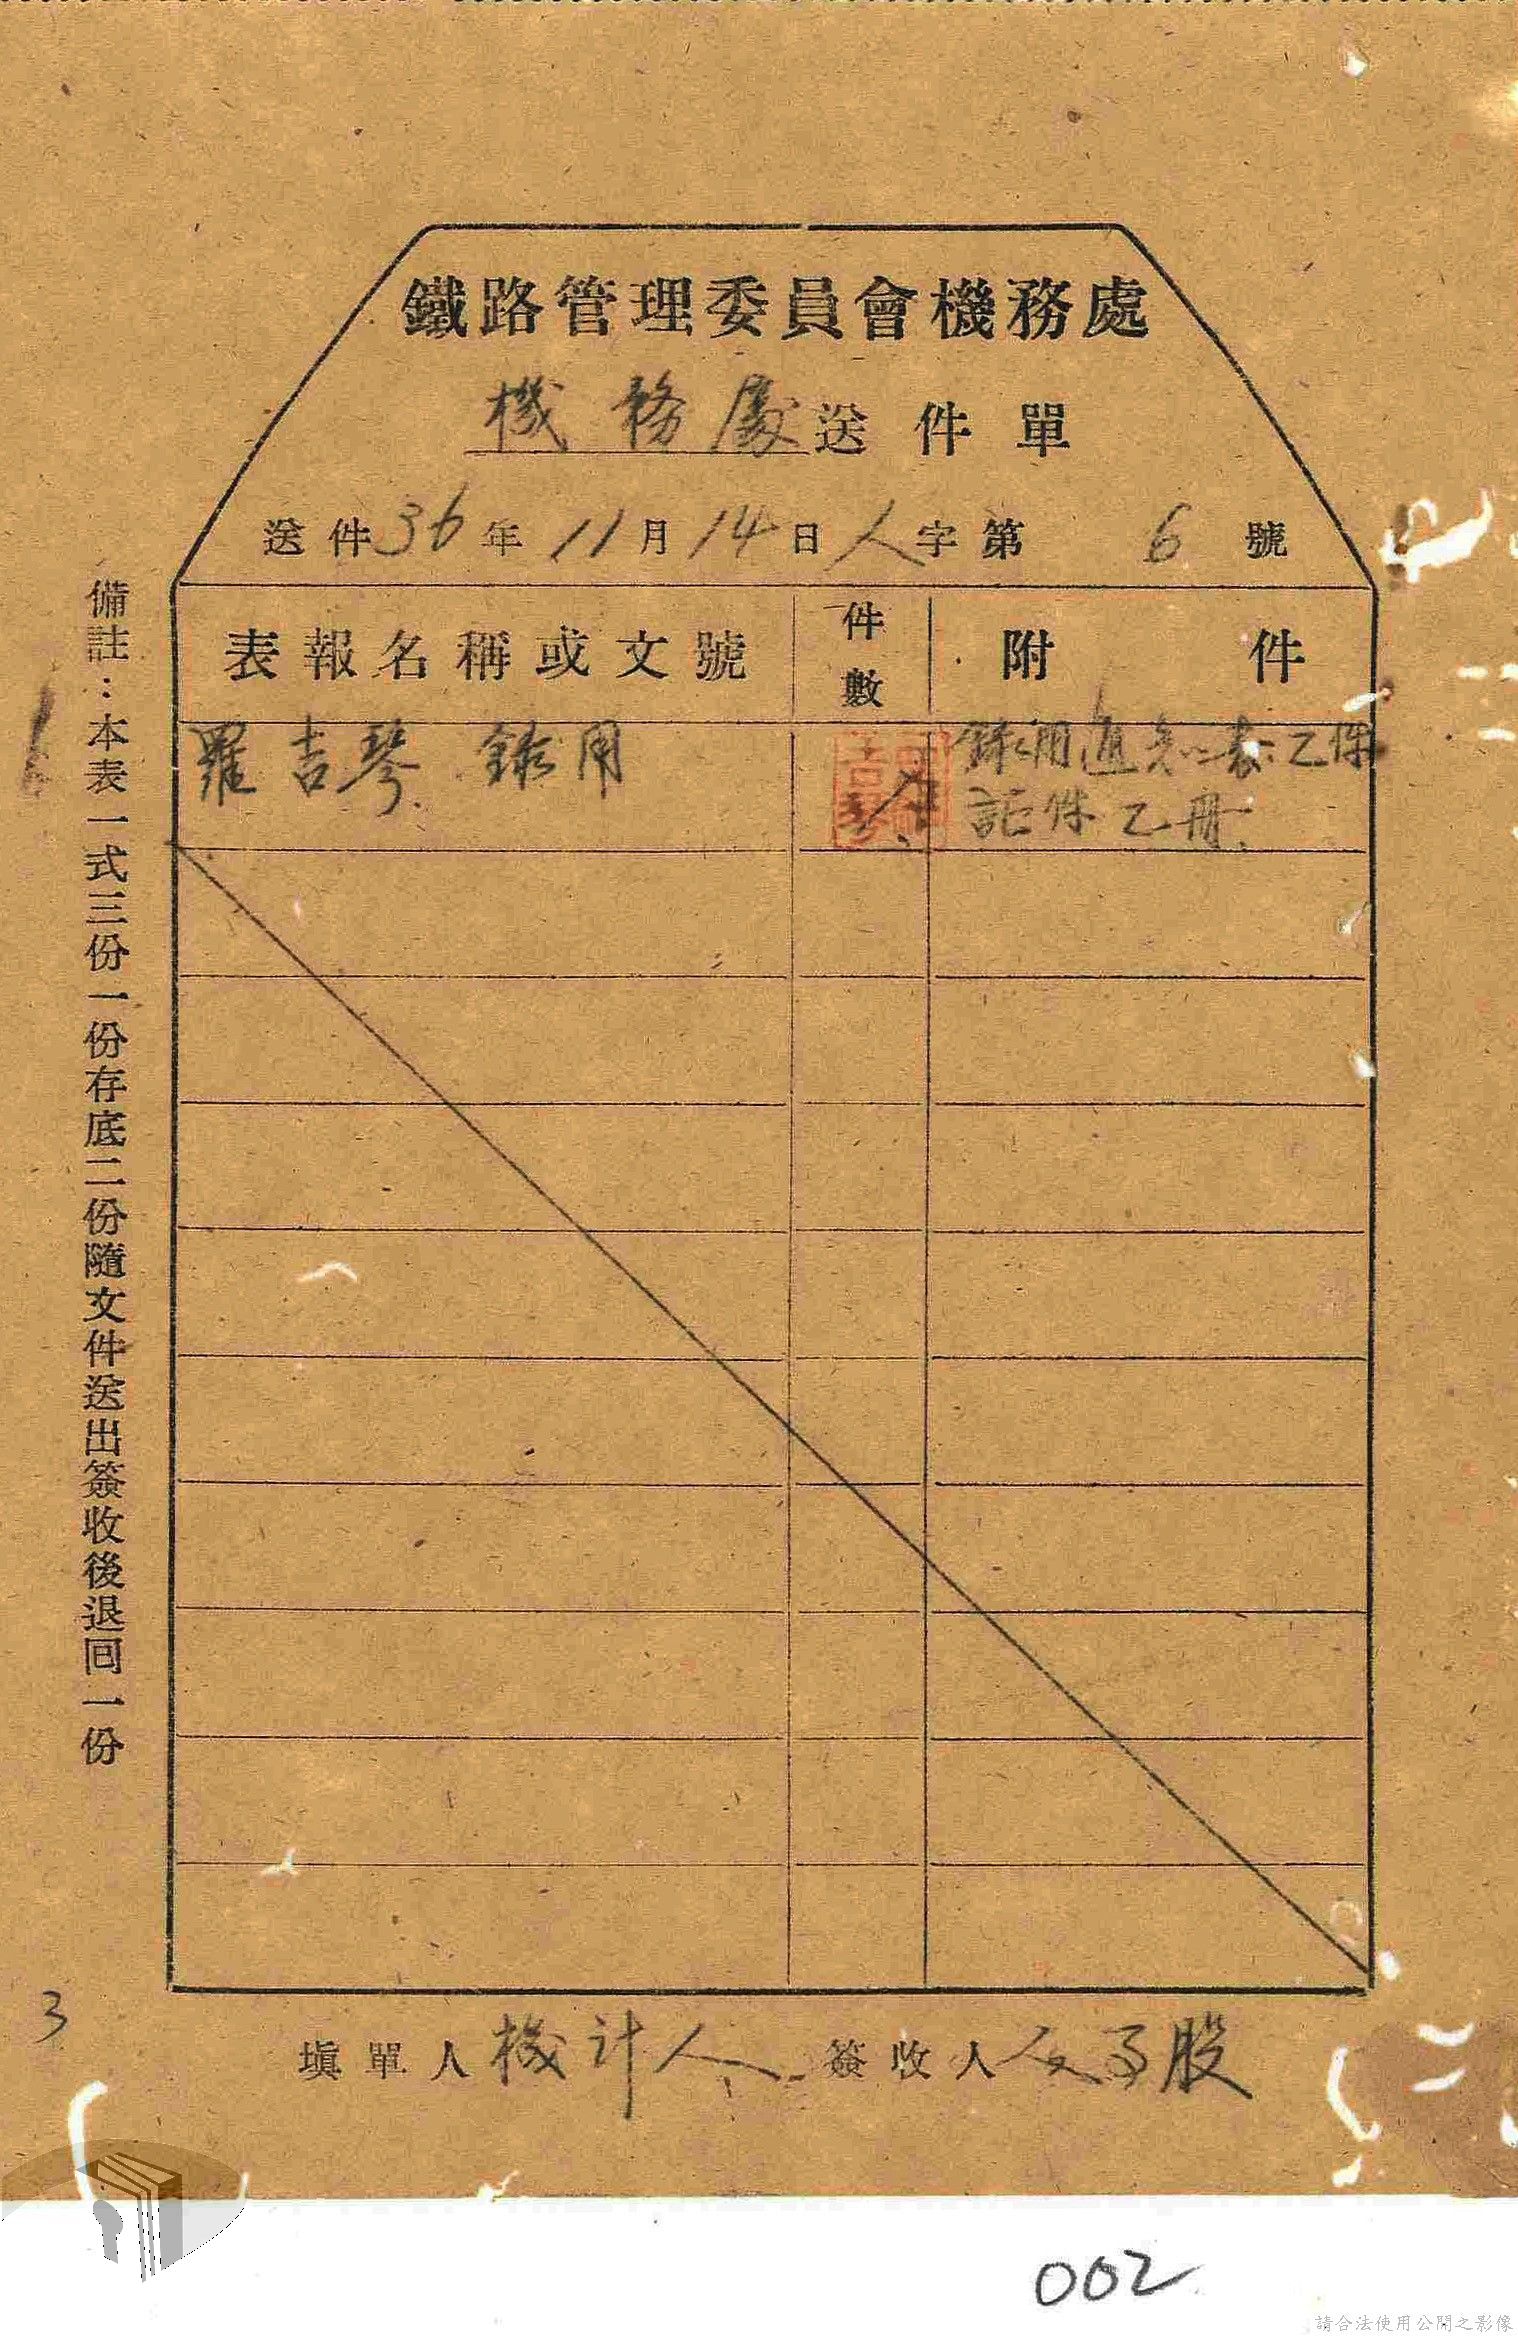 鐵路管理委員會機務處
機務處送件單
送件36年11月14日人字第6號
表報名稱或文號 件數 附件
羅吉琴 錄用 錄用通知表乙件
証件乙冊
備註:本表一式三份一份存底二份隨文件送出簽收後退回一份
填單人 機計人 簽收人 股
3
002
請合法使用公開之影像